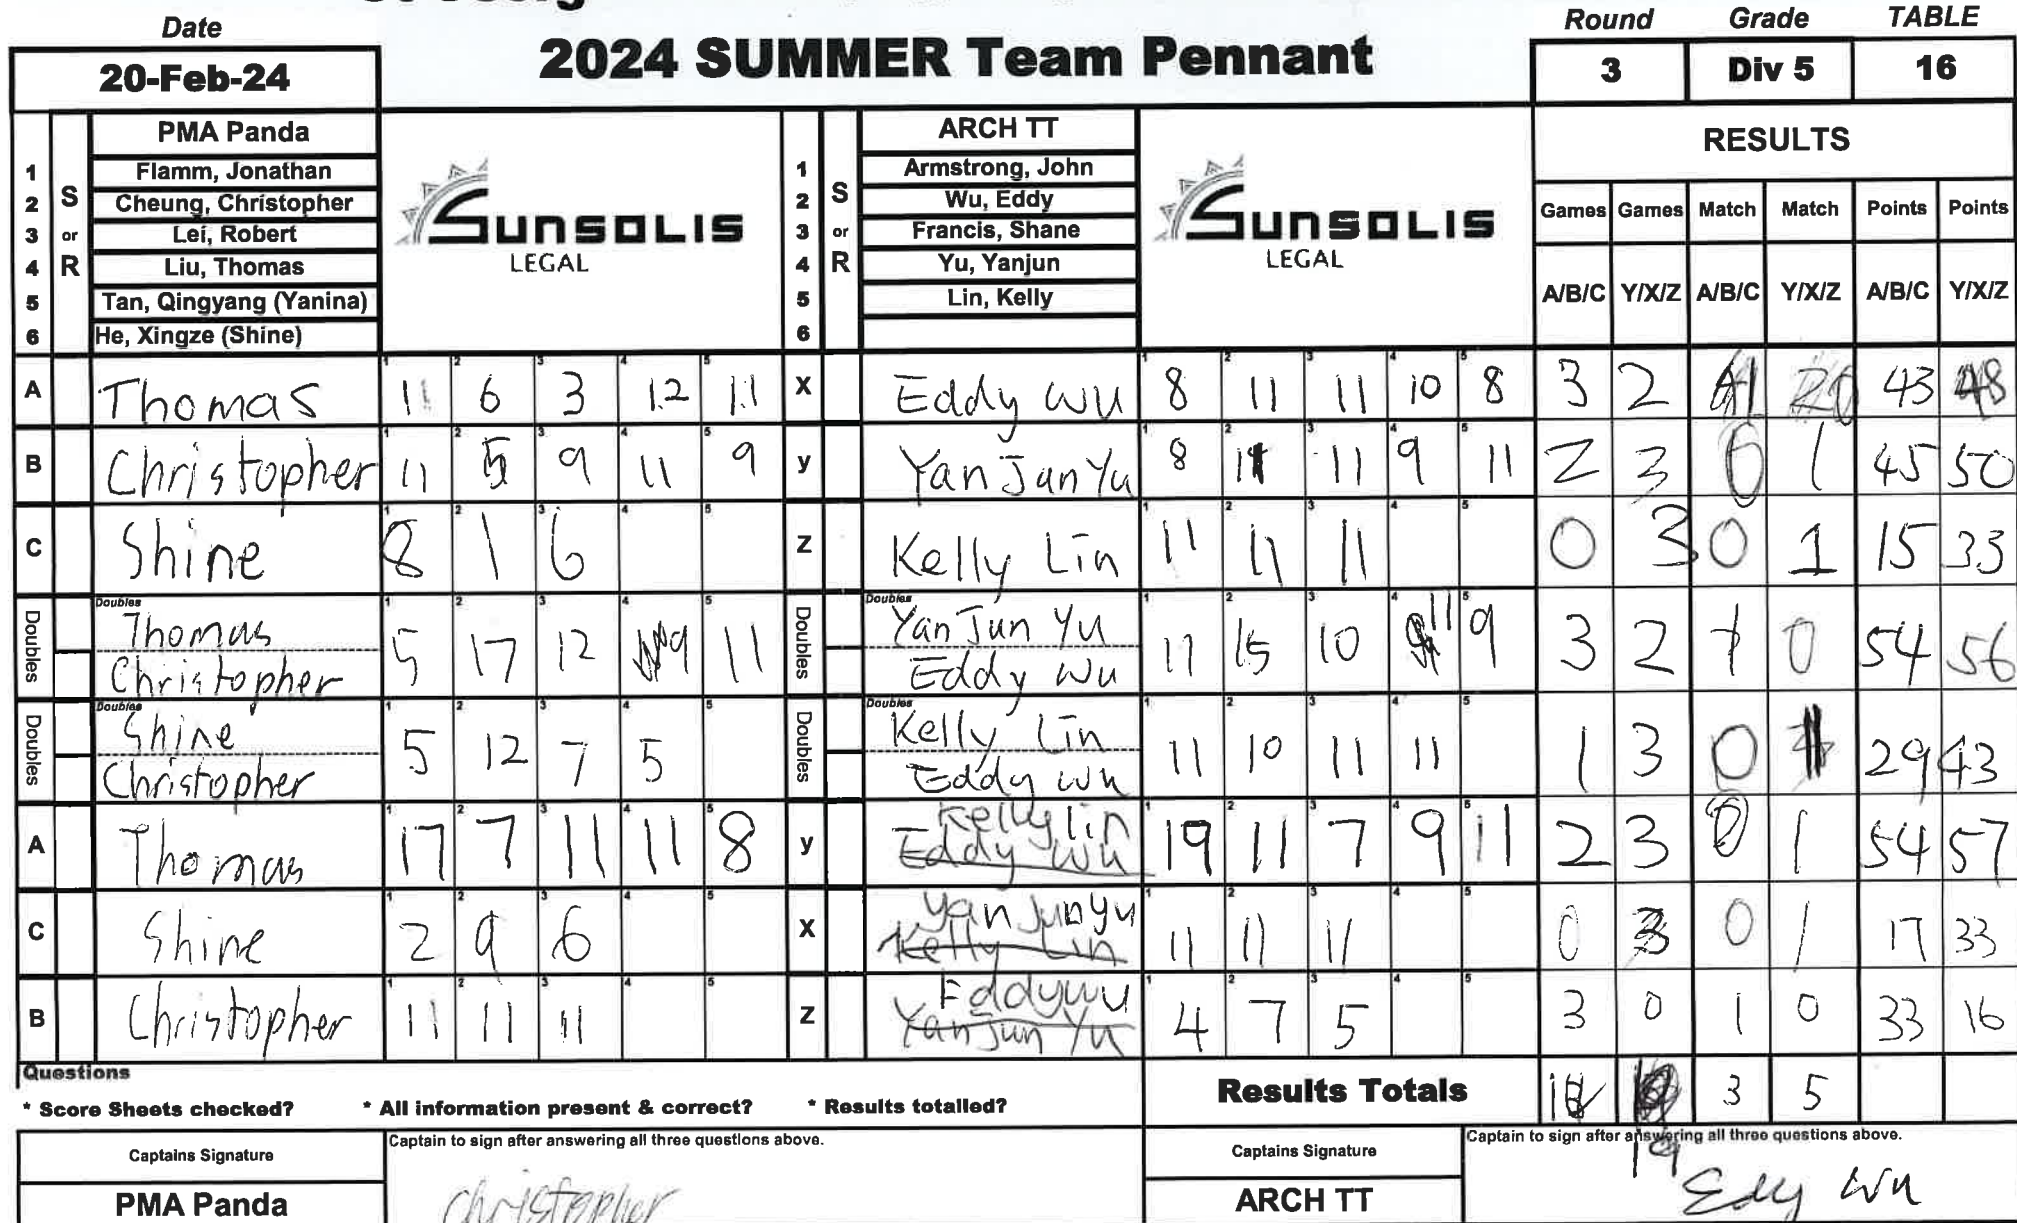 Date
20-Feb-24
2024 SUMMER Team Pennant
Round Grade TABLE
3 Div 5 16
S or R
PMA Panda
1 Flamm, Jonathan
2 Cheung, Christopher
3 Lei, Robert
4 Liu, Thomas
5 Tan, Qingyang (Yanina)
6 He, Xingze (Shine)
SUNSOLIS
LEGAL
S or R
ARCH TT
1 Armstrong, John
2 Wu, Eddy
3 Francis, Shane
4 Yu, Yanjun
5 Lin, Kelly
6
SUNSOLIS
LEGAL
RESULTS
Games Games Match Match Points Points
A/B/C Y/X/Z A/B/C Y/X/Z A/B/C Y/X/Z
A Thomas 11 6 3 12 11 X Eddy Wu 8 11 11 10 8 3 2 43 48
B Christopher 11 5 9 11 9 y Yan Jun Yu 8 11 11 9 11 2 3 0 1 45 50
C Shine 8 1 6 Z Kelly Lin 11 11 11 0 3 0 1 15 33
Doubles Thomas Christopher 5 17 12 9 11 Doubles Yan Jun Yu Eddy Wu 11 15 10 11 9 3 2 1 0 54 56
Doubles Shine Christopher 5 12 7 5 Doubles Kelly Lin Eddy Wu 11 10 11 11 1 3 0 1 29 43
A Thomas 17 7 11 11 8 y Kelly Lin Eddy Wu 19 11 7 9 11 2 3 0 1 54 57
C Shine 2 9 6 X Yan Jun Yu Kelly Lin 11 11 11 0 3 0 1 17 33
B Christopher 11 11 11 Z Eddy Wu Yan Jun Yu 4 7 5 3 0 1 0 33 16
Questions
* Score Sheets checked? * All information present & correct? * Results totalled?
Results Totals 3 5
19
Captains Signature
Captain to sign after answering all three questions above.
PMA Panda
Christopher
Captains Signature
Captain to sign after answering all three questions above.
ARCH TT
Edy Wu